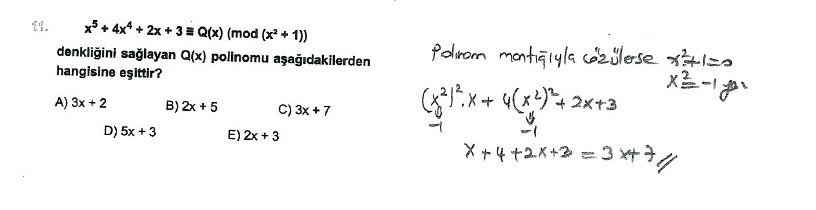 11.
x⁵ + 4x⁴ + 2x + 3 ≡ Q(x) (mod (x² + 1))
denkliğini sağlayan Q(x) polinomu aşağıdakilerden
hangisine eşittir?
A) 3x + 2 B) 2x + 5 C) 3x + 7
D) 5x + 3 E) 2x + 3
Polinom mantığıyla çözülerse x²+1=0
x²=-1
(x²)².x + 4(x²)² + 2x+3
-1 -1
x+4+2x+3 = 3x+7 //